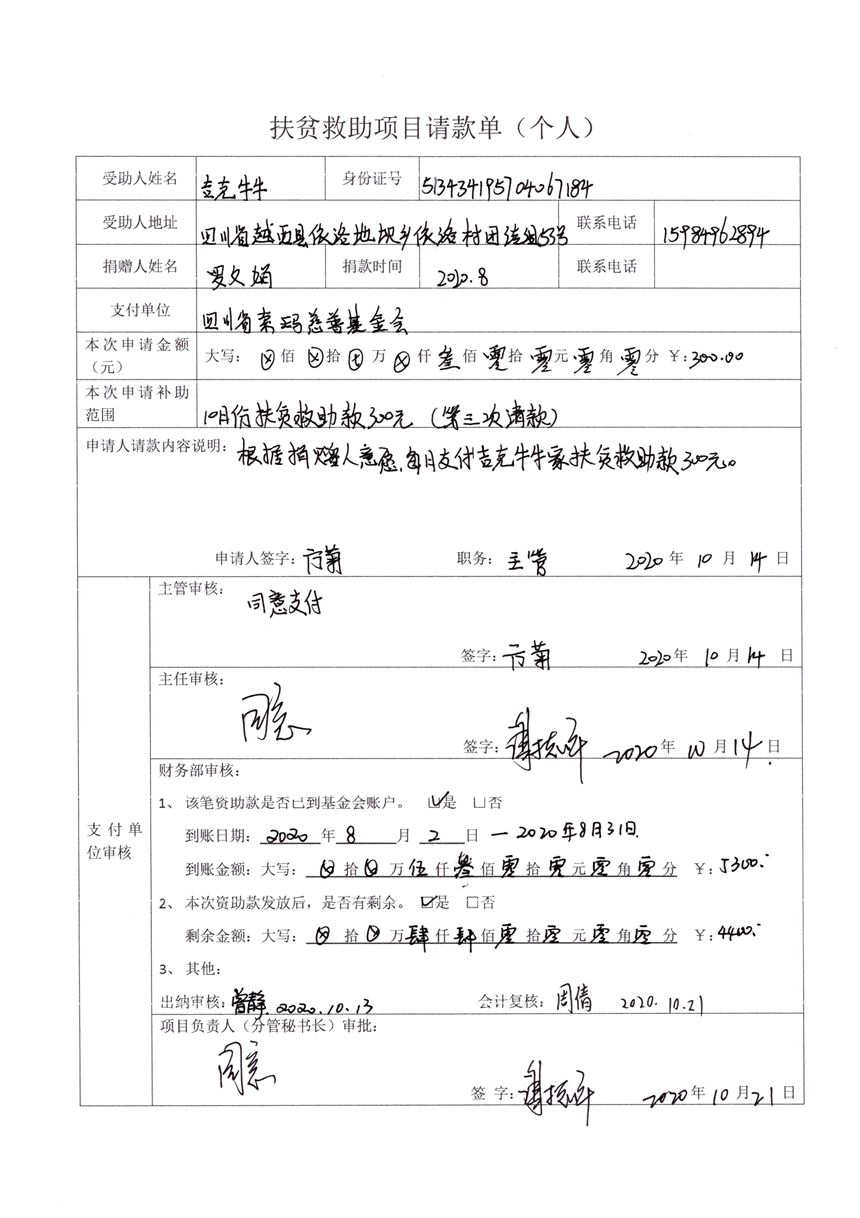 扶贫救助项目请款单（个人）
受助人姓名 吉克牛牛 身份证号 513434195704067184
受助人地址 四川省越西县依洛地坝乡依洛村团结组53号 联系电话 15984962894
捐赠人姓名 罗文娟 捐款时间 2020.8 联系电话
支付单位 四川省索玛慈善基金会
本次申请金额（元） 大写： ⊗佰 ⊗拾 ⊗万 ⊗仟 叁佰 零拾 零元 零角 零分 ￥:300.00
本次申请补助范围 10月份扶贫救助款300元（第三次请款）
申请人请款内容说明：根据捐赠人意愿,每月支付吉克牛牛家扶贫救助款300元。
申请人签字：方菊 职务：主管 2020年10月14日
主管审核：
同意支付
签字：方菊 2020年10月14日
主任审核：
同意
签字： 2020年10月14日
支付单位审核
财务部审核：
1、 该笔资助款是否已到基金会账户。 ☑是 □否
到账日期：2020年8月2日－2020年8月31日
到账金额：大写：⊗拾⊗万伍仟叁佰零拾零元零角零分 ￥：5300.-
2、 本次资助款发放后，是否有剩余。 ☑是 □否
剩余金额：大写：⊗拾⊗万肆仟肆佰零拾零元零角零分 ￥：4400.-
3、 其他：
出纳审核：曾静 2020.10.13 会计复核：周倩 2020.10.21
项目负责人（分管秘书长）审批：
同意
签 字： 2020年10月21日